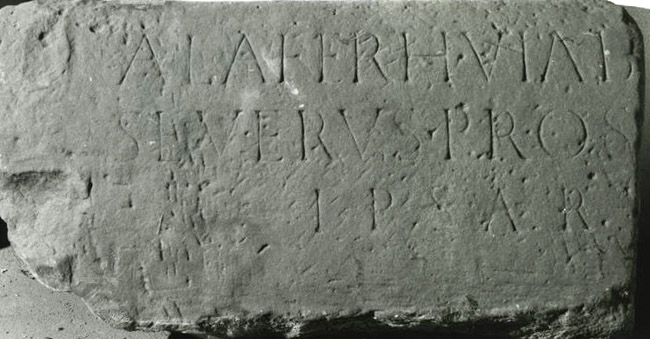 ALAFERHVIAB
SEVERVS·PRO·S
I P S A R